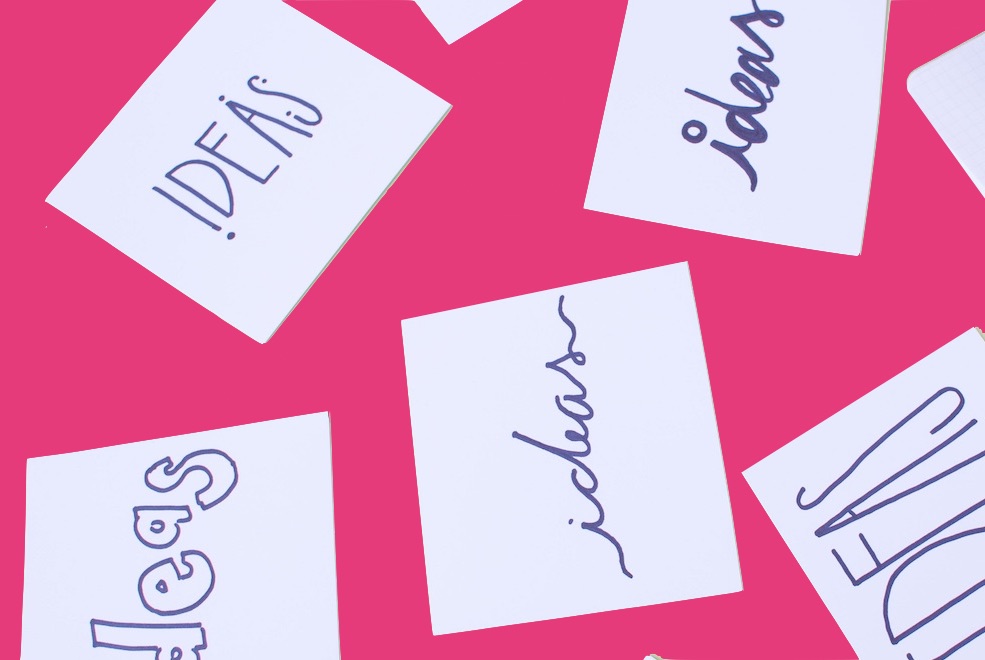 IDEAS
ideas
ideas
deas
DEAS